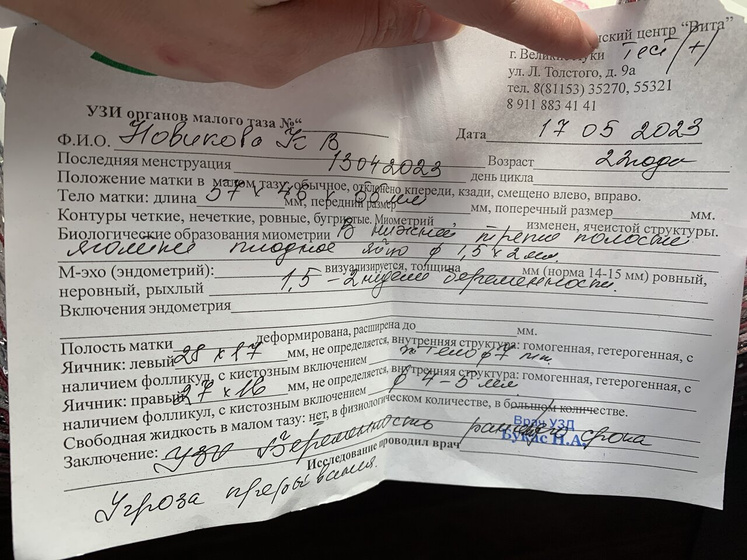 нский центр "Вита"
г. Великие Луки Тест (+)
ул. Л. Толстого, д. 9а
тел. 8(81153) 35270, 55321
8 911 883 41 41
УЗИ органов малого таза №
Ф.И.О. Новикова К В Дата 17 05 2023
Последняя менструация 13 04 2023 Возраст 22 года
день цикла
Положение матки в малом тазу: обычное, отклонено кпереди, кзади, смещено влево, вправо.
Тело матки: длина 57 × 48 × мм, передний размер мм, поперечный размер мм.
Контуры четкие, нечеткие, ровные, бугристые. Миометрий изменен, ячеистой структуры.
Биологические образования миометрии В нижней трети полости
плодное яйцо ϕ 1,5 × 2 мм.
М-эхо (эндометрий): визуализируется, толщина мм (норма 14-15 мм) ровный,
неровный, рыхлый 1,5 – 2 недели беременности.
Включения эндометрия
Полость матки деформирована, расширена до мм.
Яичник: левый 28 × 17 мм, не определяется, внутренняя структура: гомогенная, гетерогенная, с
наличием фолликул, с кистозным включением ж тело ϕ 7 мм.
Яичник: правый 27 × 16 мм, не определяется, внутренняя структура: гомогенная, гетерогенная, с
наличием фолликул, с кистозным включением ϕ 4 – 5 мм.
Свободная жидкость в малом тазу: нет, в физиологическом количестве, в большом количестве.
Заключение: УЗИ Беременность раннего срока
Врач УЗД
Букас Н.А.
Исследование проводил врач
Угроза прерывания.